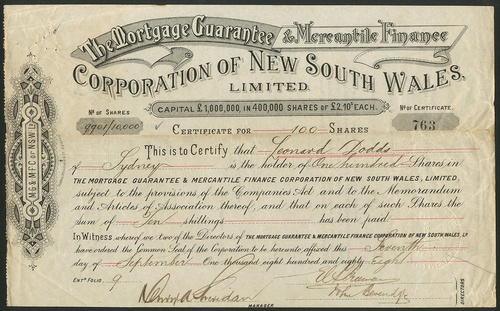 The Mortgage Guarantee & Mercantile Finance
CORPORATION OF NEW SOUTH WALES,
LIMITED.
CAPITAL £1,000,000, IN 400,000 SHARES OF £2.10s EACH.
No OF SHARES
9901/10,000
No OF CERTIFICATE.
763
CERTIFICATE FOR 100 SHARES
This is to Certify that Leonard Dodds
of Sydney is the holder of One hundred Shares in
THE MORTGAGE GUARANTEE & MERCANTILE FINANCE CORPORATION OF NEW SOUTH WALES, LIMITED,
subject to the provisions of the Companies Act and to the Memorandum
and Articles of Association thereof, and that on each of such Shares the
sum of Ten shillings has been paid.
In Witness whereof we two of the Directors of THE MORTGAGE GUARANTEE & MERCANTILE FINANCE CORPORATION OF NEW SOUTH WALES, LD
have ordered the Common Seal of the Corporation to be hereunto affixed this Seventh
day of September One thousand eight hundred and eighty Eight
ENTD FOLIO 9
MANAGER
DIRECTORS
MG & MFC OF NSW LD